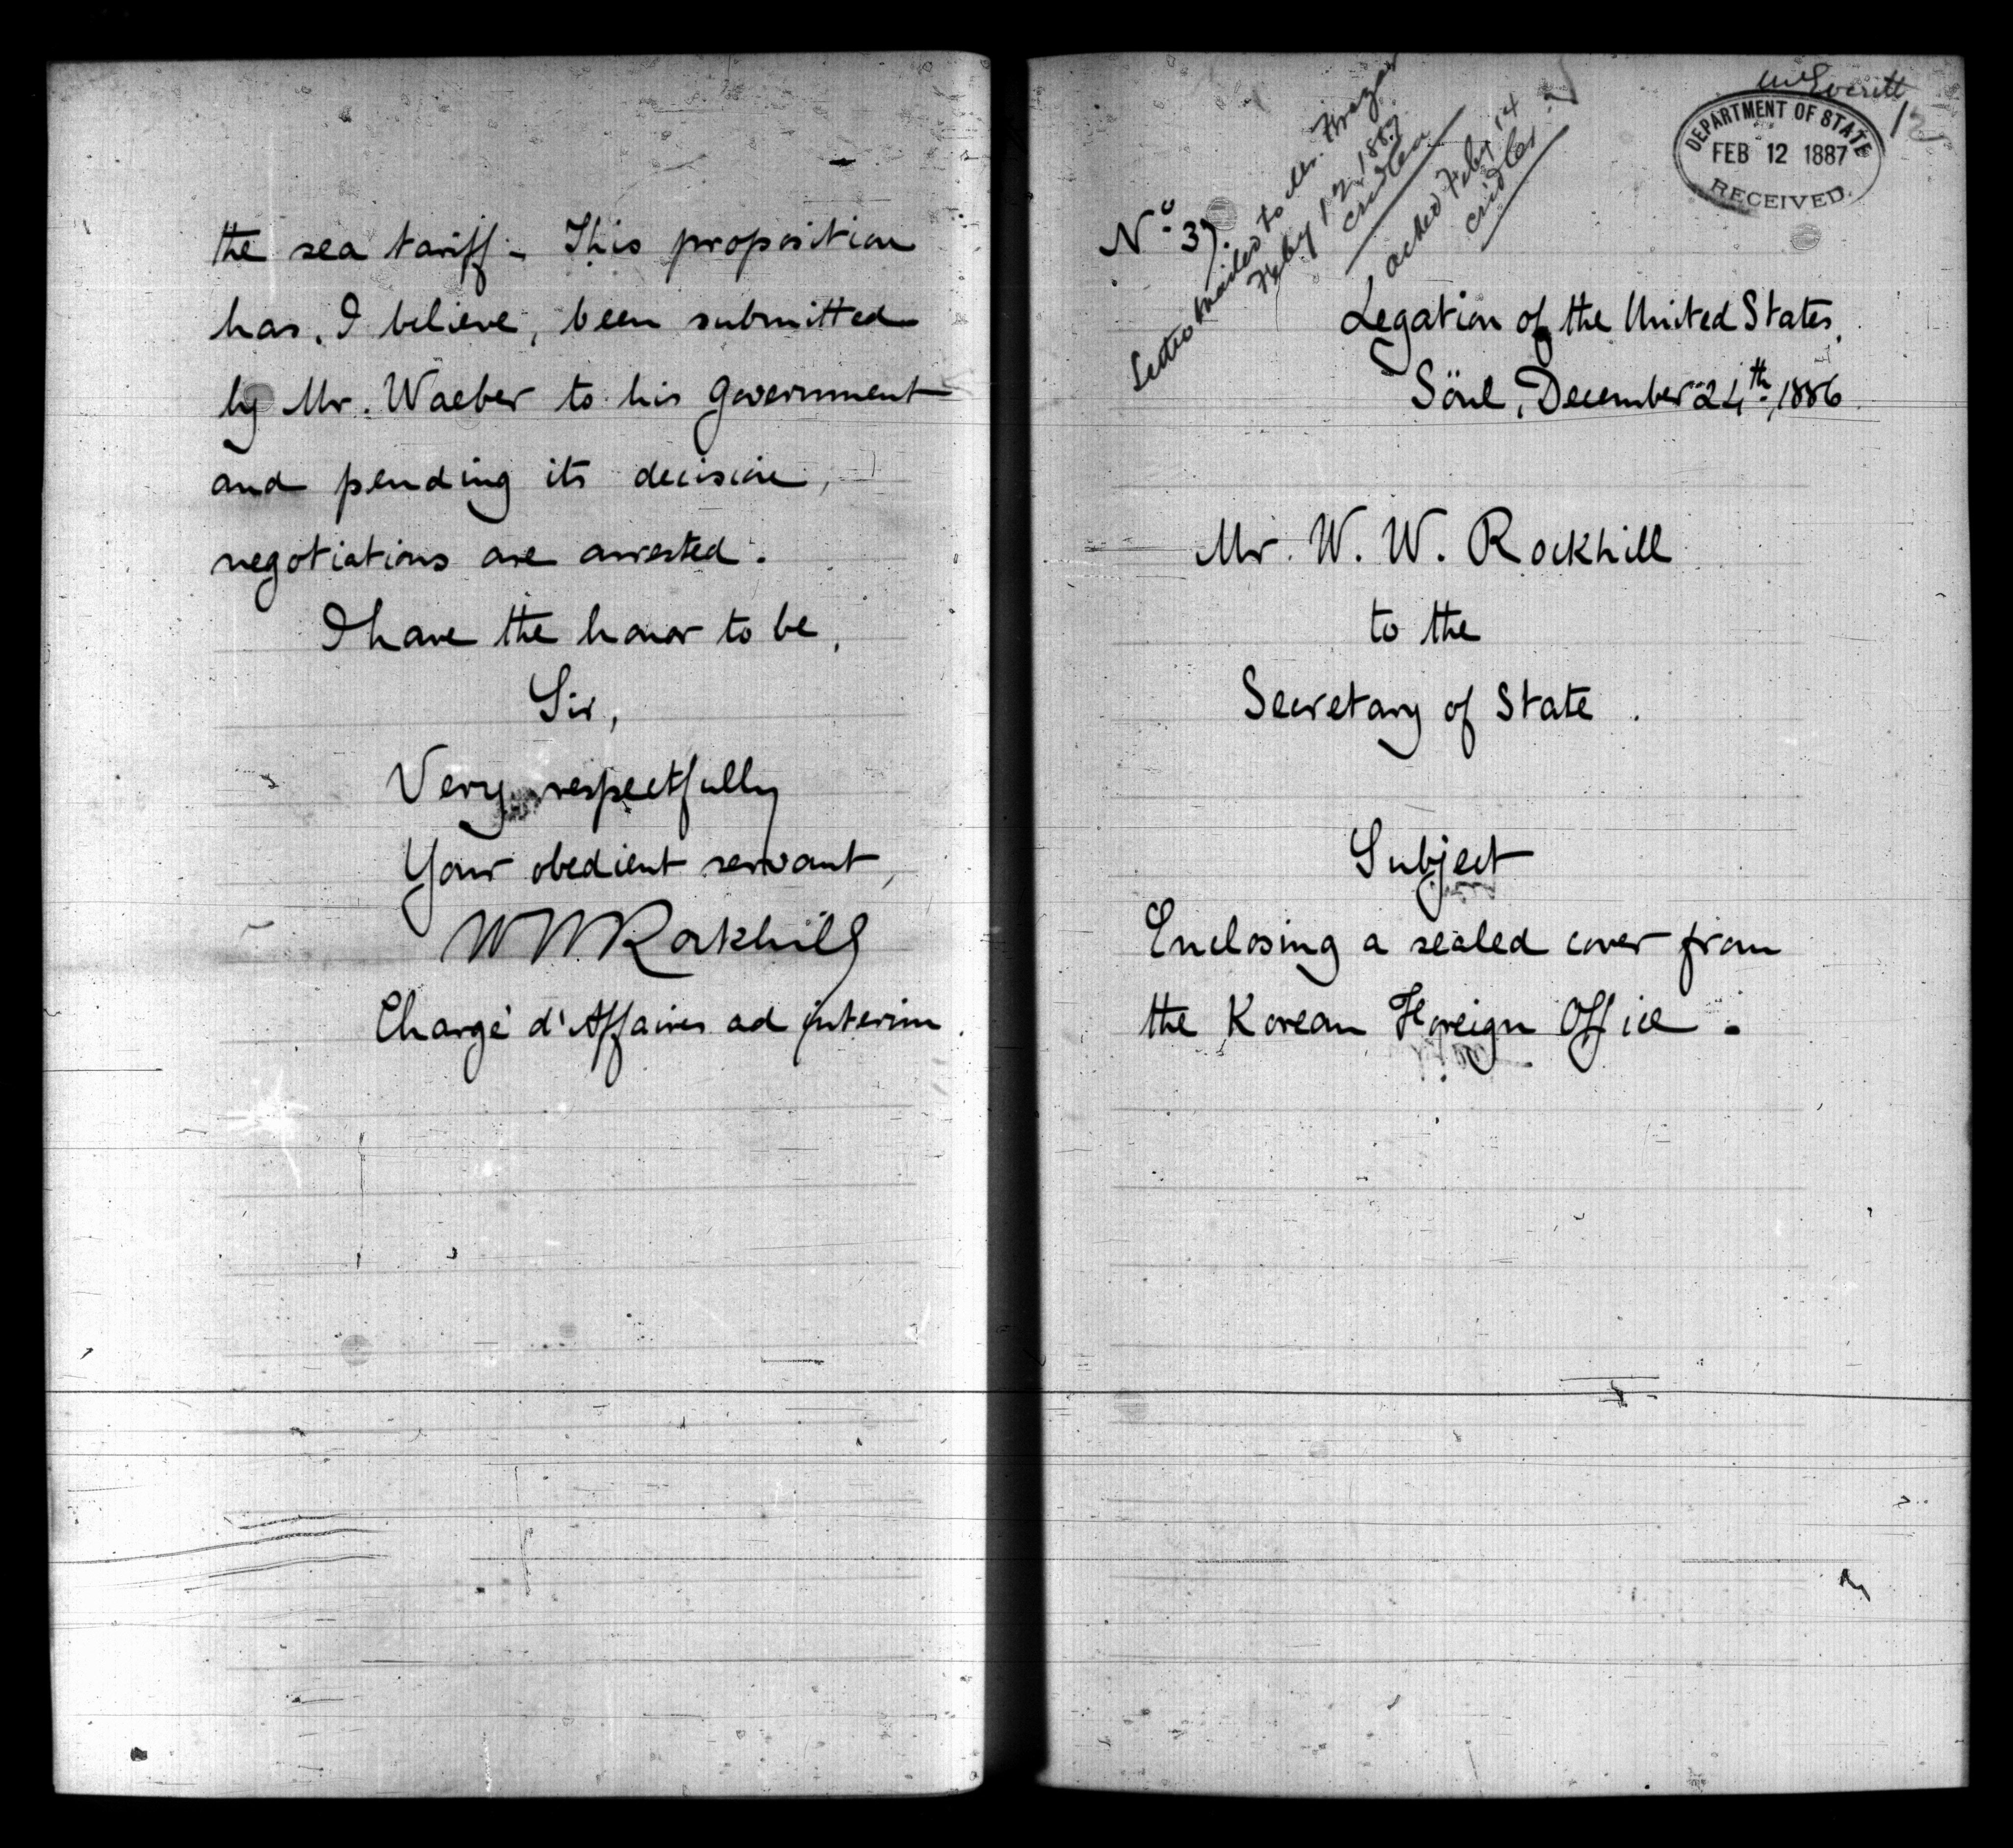 the sea tariff - This proposition
has, I believe, been submitted
by Mr. Waeber to his Government
and pending its decision,
negotiations are arrested.
I have the honor to be,
Sir,
Very respectfully
Your obedient servant,
W W Rockhill
Chargé d'Affaires ad interim.
Everett
12
DEPARTMENT OF STATE
FEB 12 1887
RECEIVED.
No. 37.
mailed to Mr. Frazar
Feby 1887
Cridler
acked Feby 14
Cridler
Legation of the United States,
Söul, December 24th, 1886
Mr. W. W. Rockhill
to the
Secretary of State.
Subject
Enclosing a sealed cover from
the Korean Foreign Office.